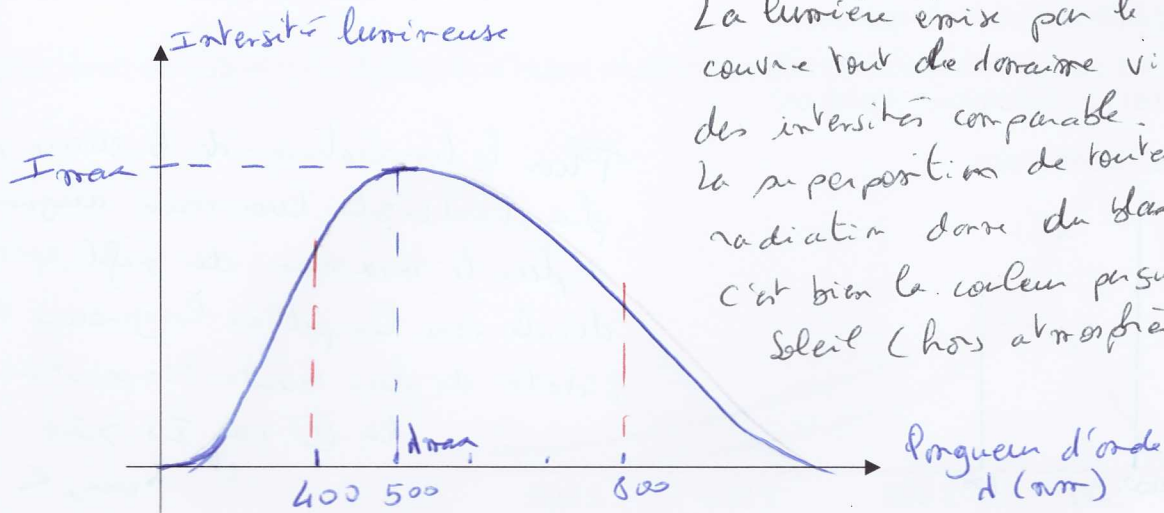 Intensité lumineuse
La lumière émise par le
couvre tout le domaine vi
des intensités comparable.
La superposition de toute
radiation donne du blan
c'est bien la couleur perçu
Soleil (hors atmosphè
Imax
λmax
400 500 800
longueur d'onde
λ (nm)